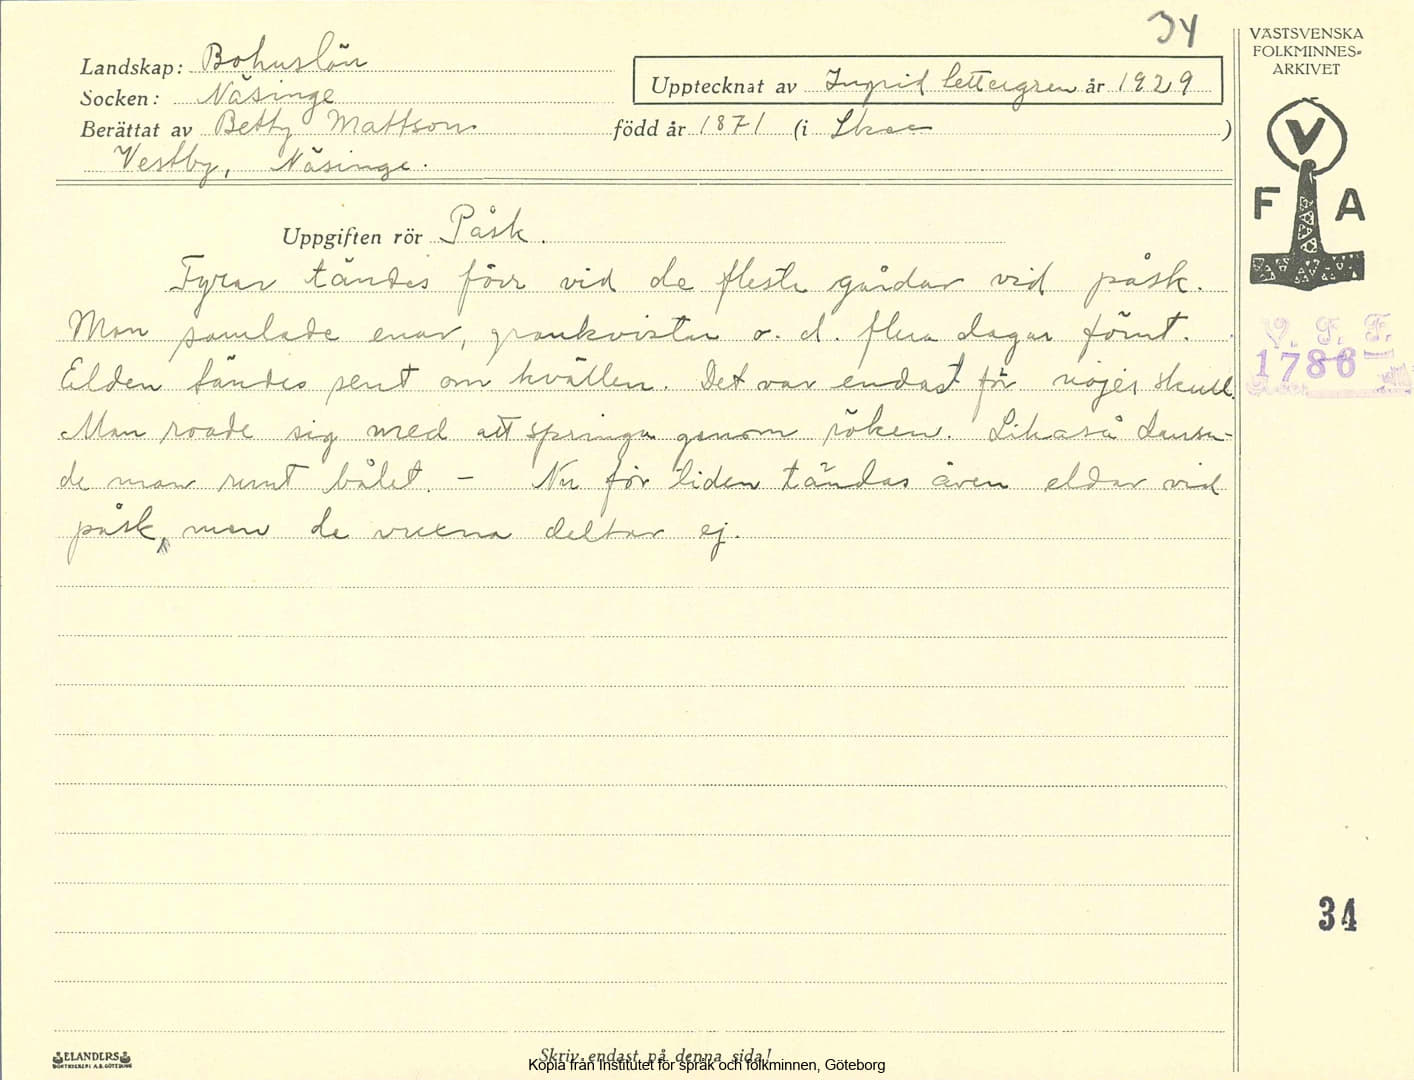 34
Landskap: Bohuslän
Socken: Näsinge
Upptecknat av Ingrid Settergren år 1929
Berättat av Betty Mattson född år 1871 (i Skee)
Vestby, Näsinge.
VÄSTSVENSKA
FOLKMINNES-
ARKIVET
V
F A
Uppgiften rör Påsk.
Fyrar tändes förr vid de flesta gårdar vid påsk.
Man samlade enar, grankvistar o. d. flera dagar förut.
Elden tändes sent om kvällen. Det var endast för nöjes skull.
Man roade sig med att springa genom röken. Likaså dansa-
de man runt bålet. – Nu för tiden tändas även eldar vid
påsk, men de vuxna deltar ej.
V. F. F.
1786
34
ELANDERS
BOKTRYCKERI A.B. GÖTEBORG
Skriv endast på denna sida!
Kopia från Institutet för språk och folkminnen, Göteborg